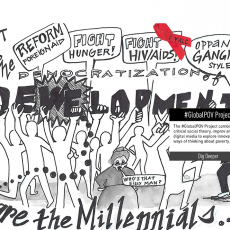 REFORM
FOREIGN AID
FIGHT
HUNGER!
FIGHT
HIV/AIDS!
OPPAN
GANGN
STYLE
the
DEMOCRATIZATION
of
DEVELOPMENT
#GlobalPOV Project
The #GlobalPOV Project combin
critical social theory, improv ar
digital media to explore innovat
ways of thinking about poverty,
Dig Deeper
WHO'S THAT
BUSY MAN?
are the Millennials...